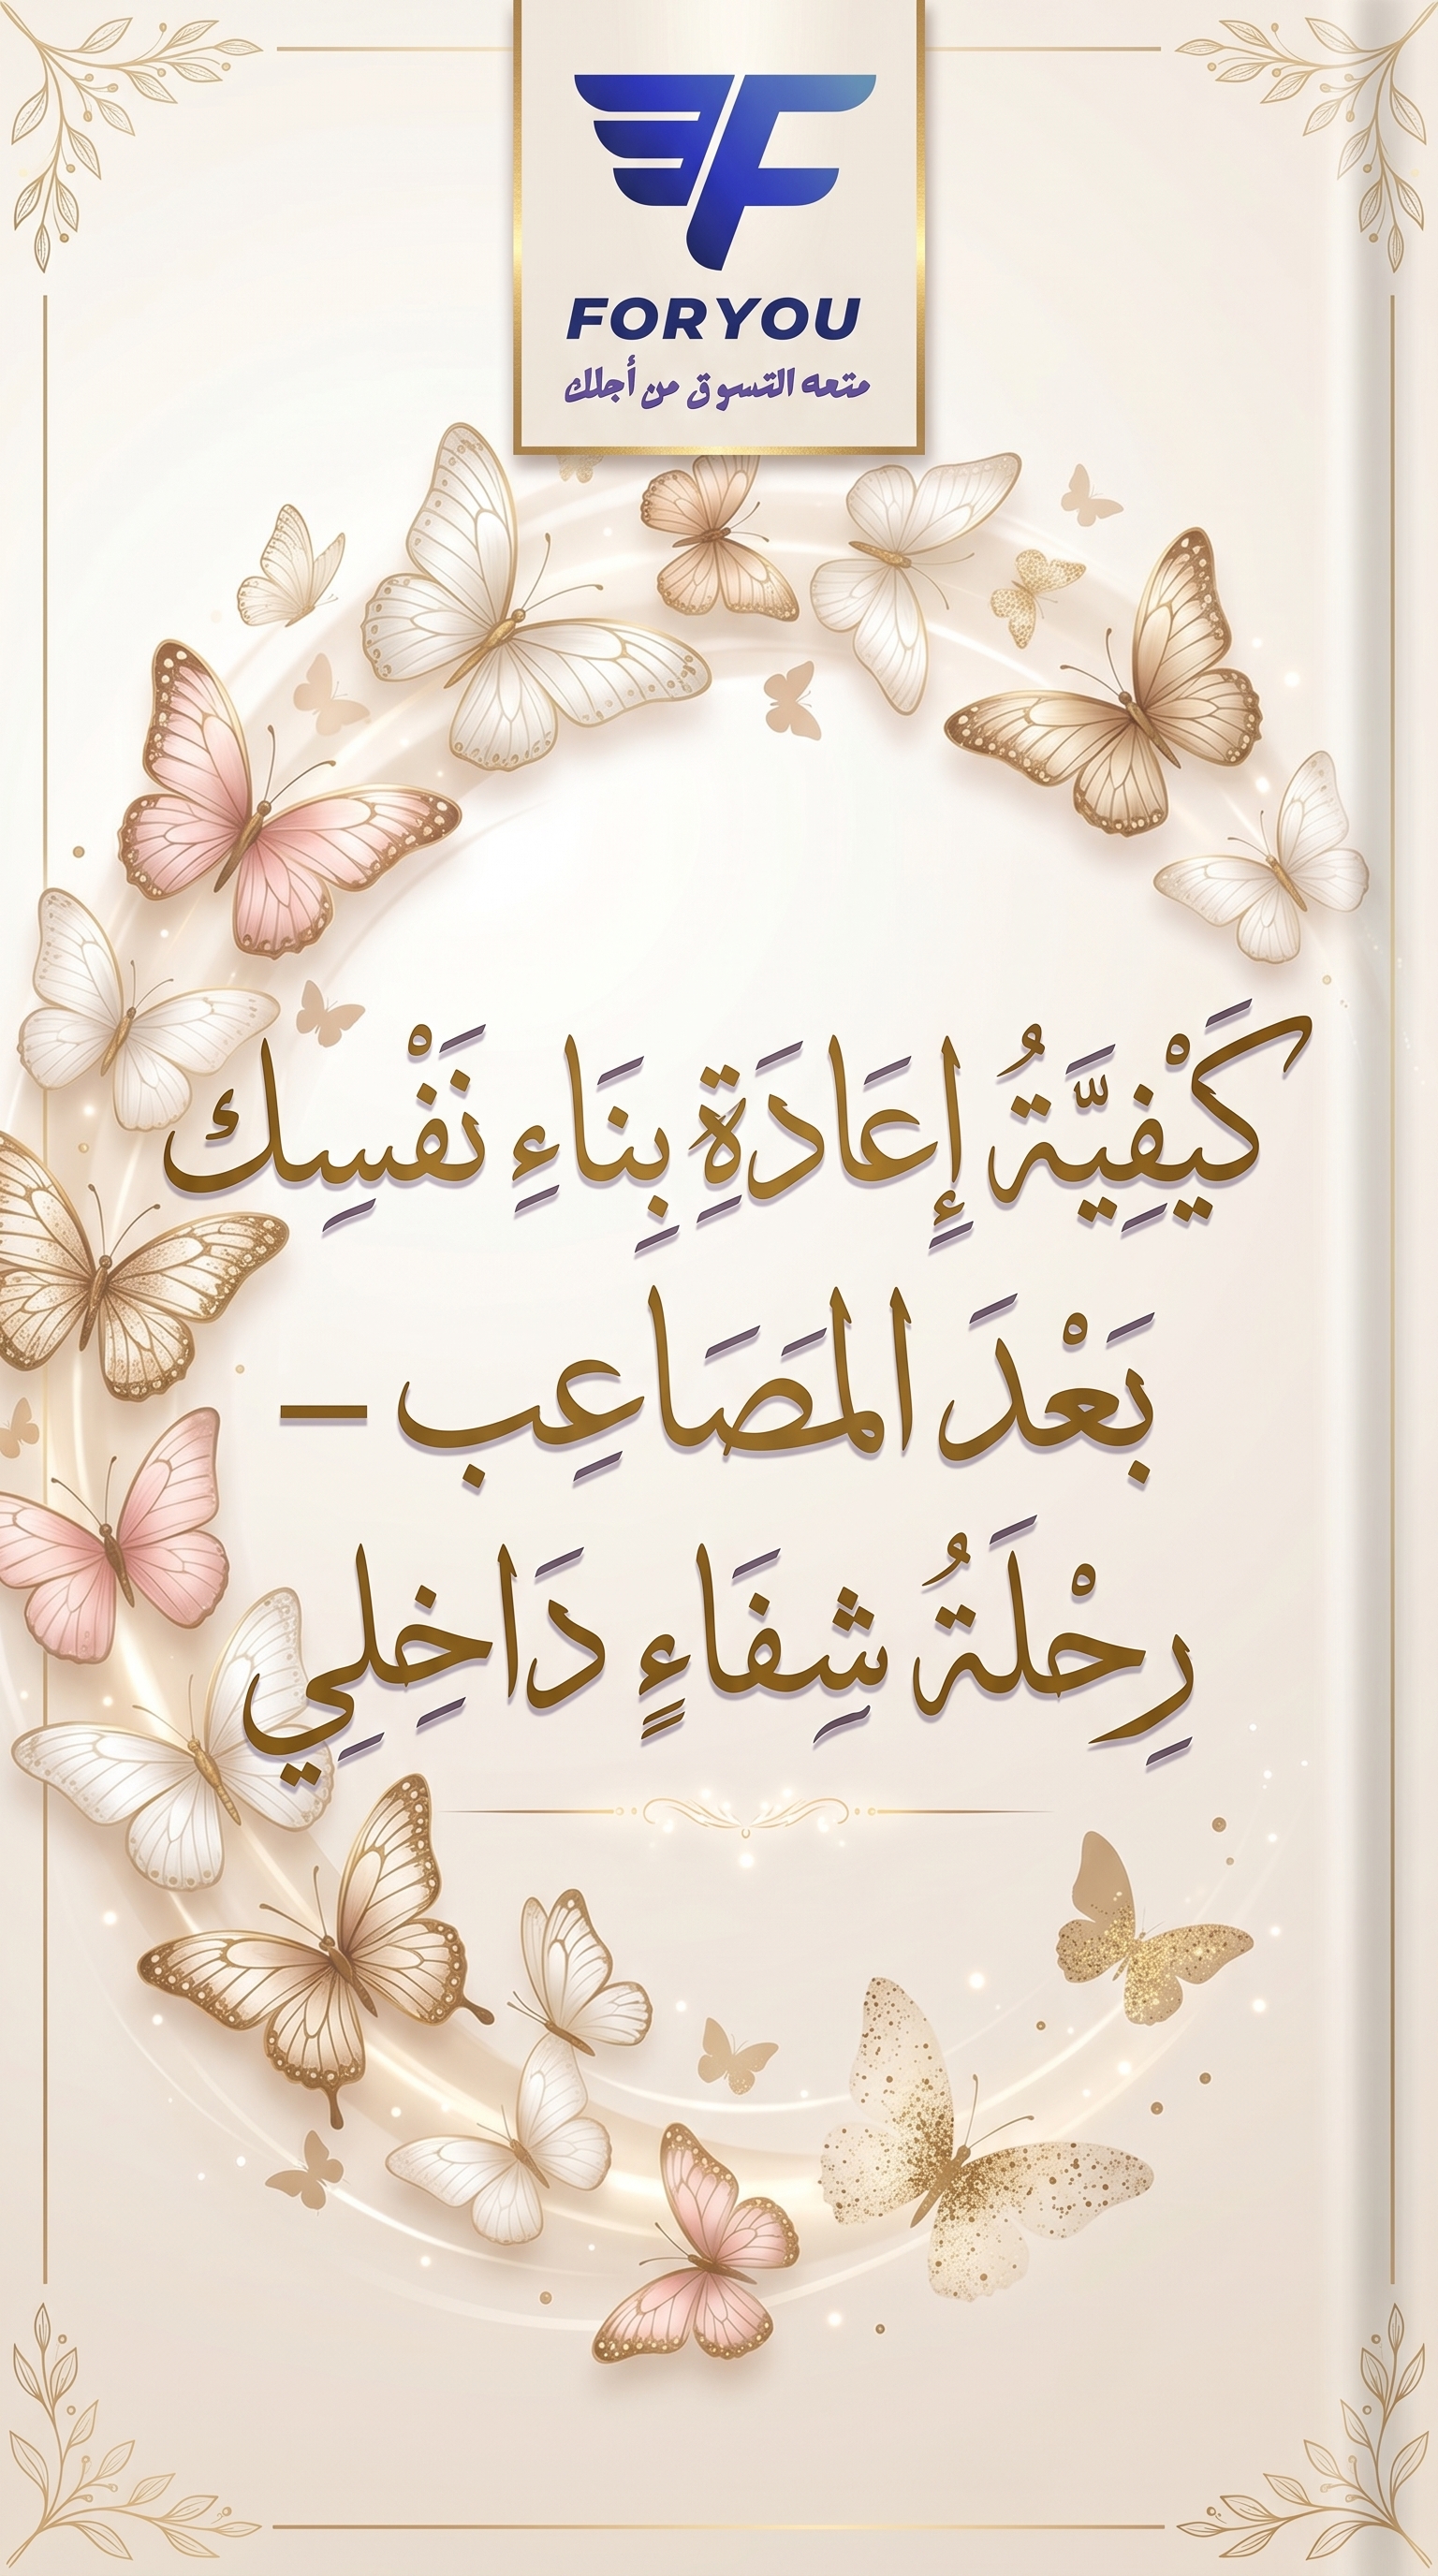 FORYOU
متعه التسوق من أجلك
كَيْفِيَّةُ إِعَادَةِ بِنَاءِ نَفْسِك
بَعْدَ المَصَاعِب –
رِحْلَةُ شِفَاءٍ دَاخِلِي